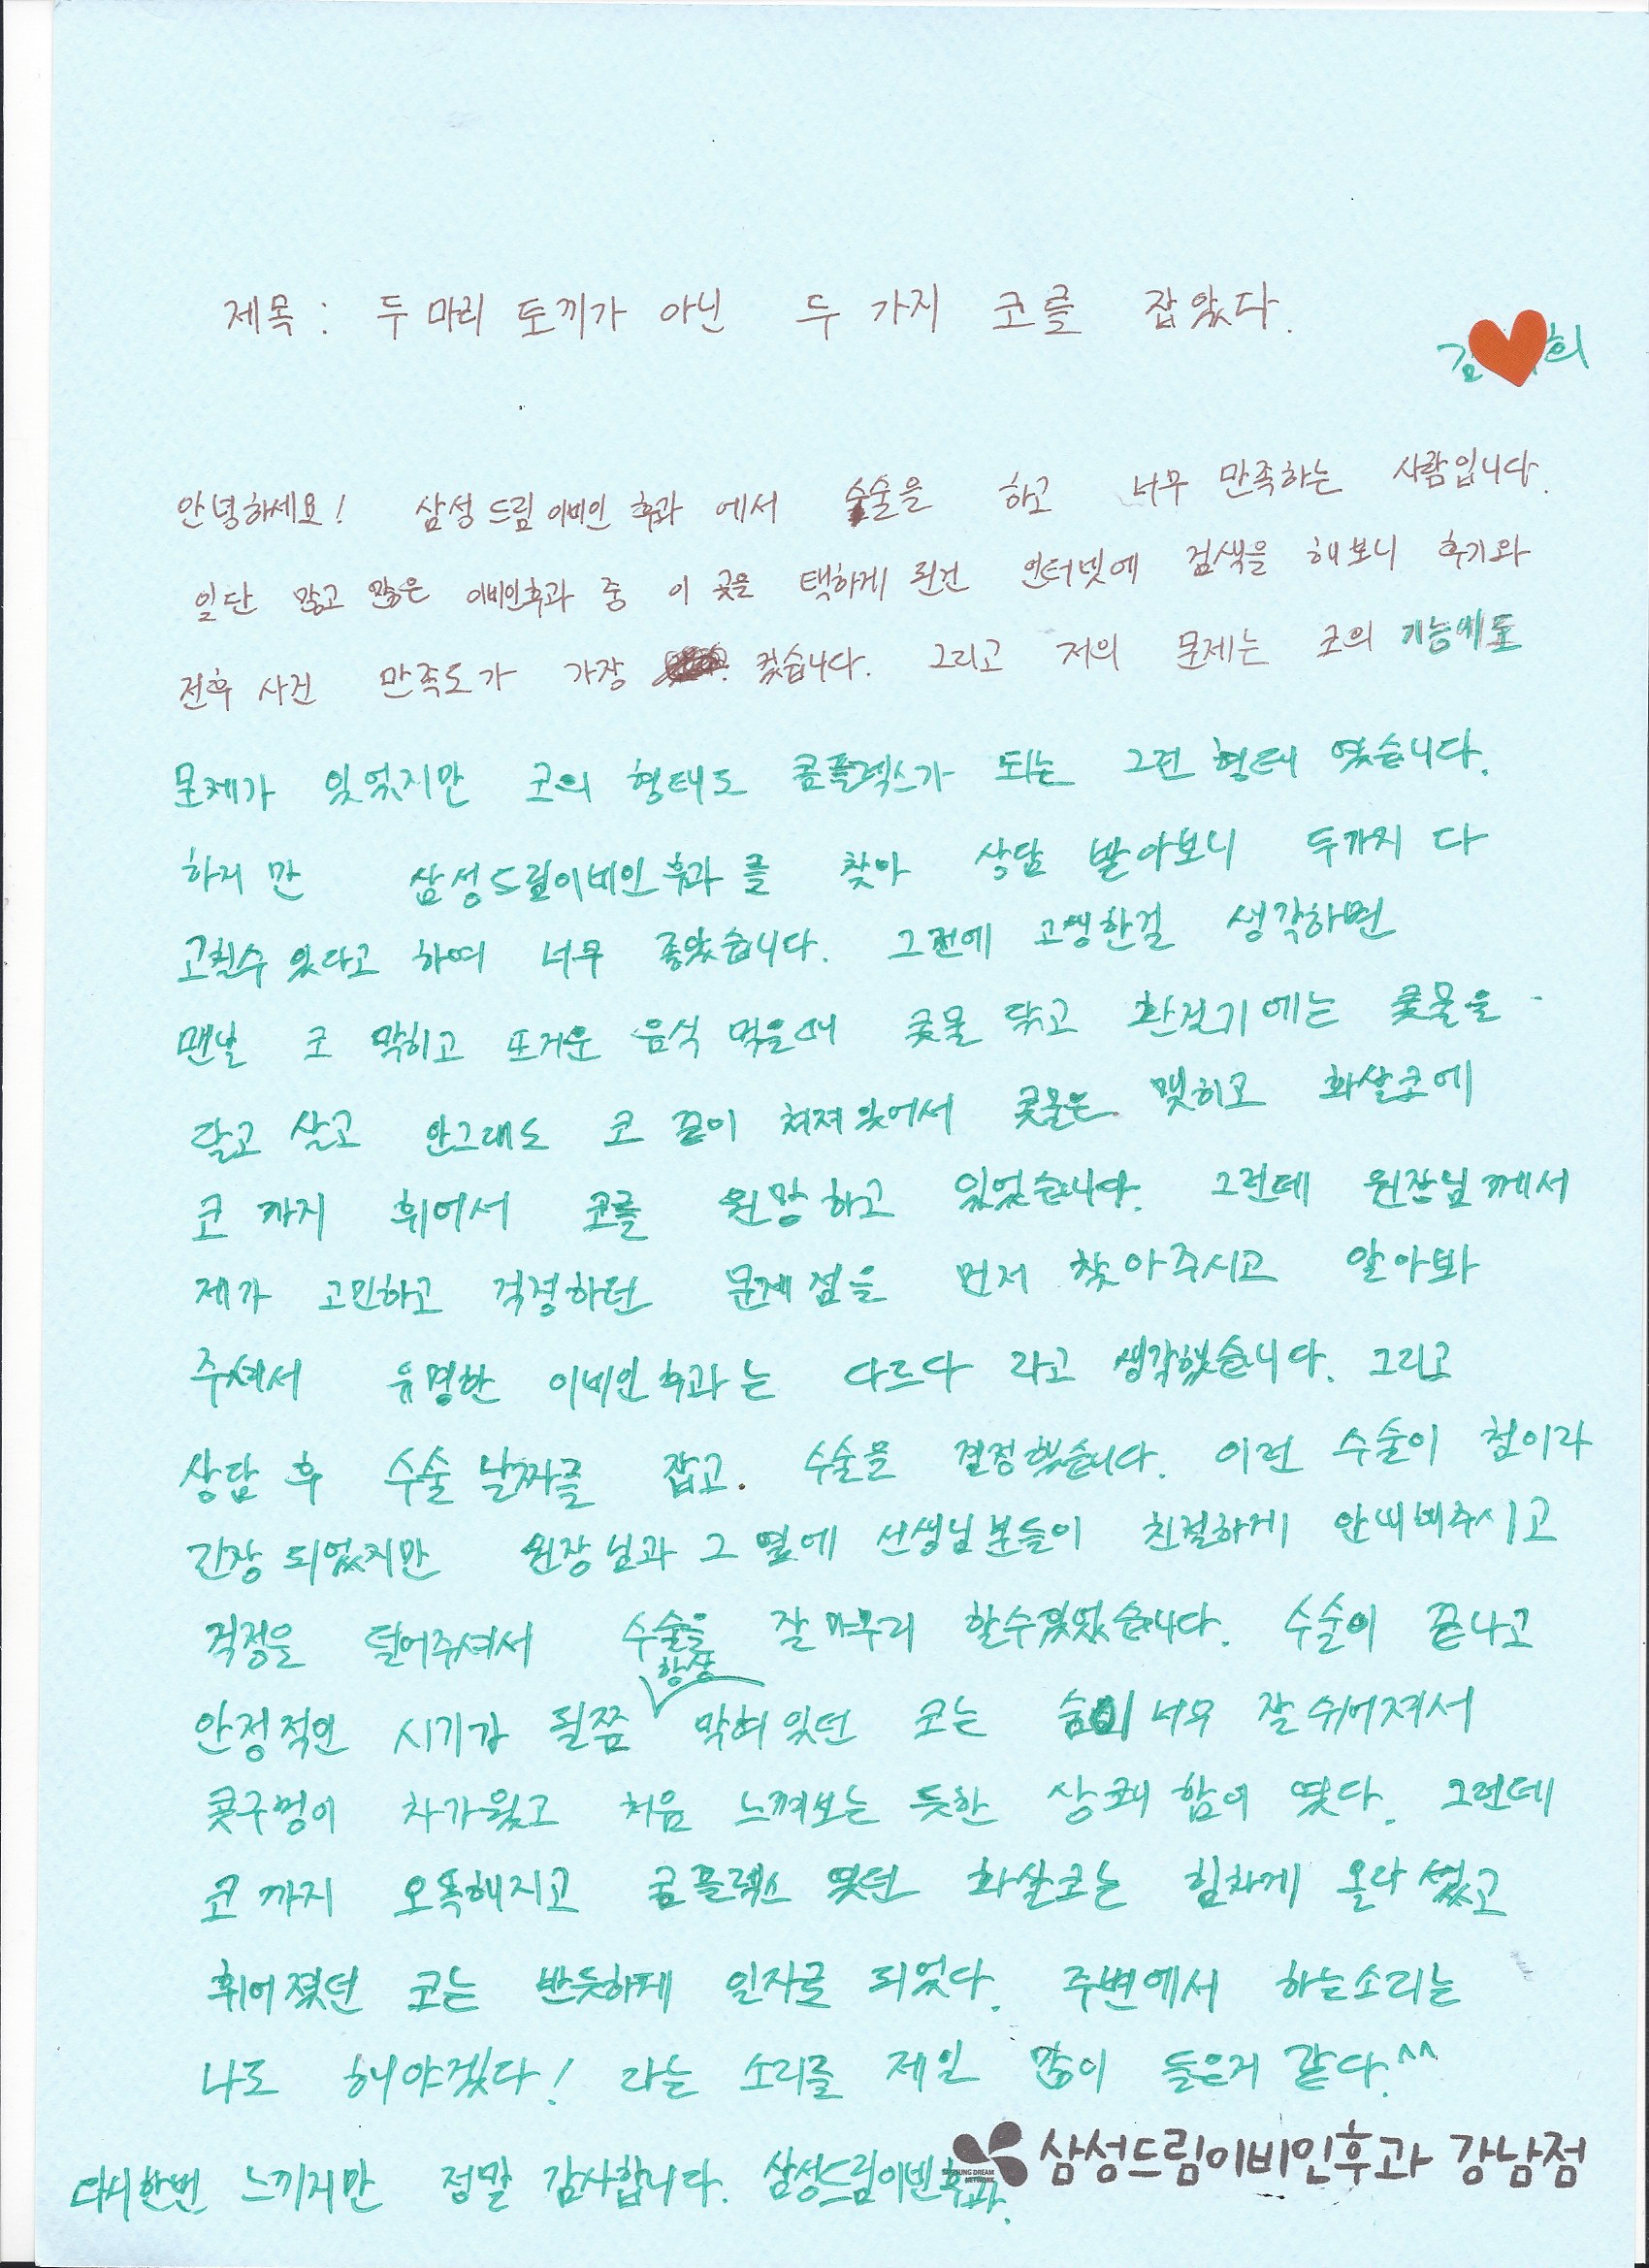 제목 : 두 마리 토끼가 아닌 두 가지 코를 잡았다.
김 희
안녕하세요! 삼성드림이비인후과에서 수술을 하고 너무 만족하는 사람입니다.
일단 많고 많은 이비인후과 중 이 곳을 택하게 된건 인터넷에 검색을 해보니 후기와
전후 사진 만족도가 가장 컸습니다. 그리고 저의 문제는 코의 기능에도
문제가 있었지만 코의 형태도 콤플렉스가 되는 그런 형태 였습니다.
하지만 삼성드림이비인후과를 찾아 상담 받아보니 두가지 다
고칠수 있다고 하여 너무 좋았습니다. 그전에 고생한걸 생각하면
맨날 코 막히고 뜨거운 음식 먹을때 콧물 닦고 환절기에는 콧물을
달고 살고 안그래도 코 끝이 쳐져있어서 콧물은 맺히고 화살코에
코 까지 휘어서 코를 원망하고 있었습니다. 그런데 원장님께서
제가 고민하고 걱정하던 문제점을 먼저 찾아주시고 알아봐
주셔서 유명한 이비인후과는 다르다 라고 생각했습니다. 그리고
상담 후 수술 날짜를 잡고. 수술을 결정했습니다. 이런 수술이 첨이라
긴장 되었지만 원장님과 그 옆에 선생님분들이 친절하게 안내해주시고
걱정을 덜어주셔서 수술을 잘 마무리 할수있었습니다. 수술이 끝나고
안정적인 시기가 될쯤 항상 막혀있던 코는 숨이 너무 잘 쉬어져서
콧구멍이 차가웠고 처음 느껴보는 듯한 상쾌함이 였다. 그런데
코 까지 오똑해지고 콤플렉스 였던 화살코는 힘차게 올라 섰고
휘어졌던 코는 반듯하게 일자로 되었다. 주변에서 하는소리는
나도 해야겠다! 라는 소리를 제일 많이 들은거 같다.^^
다시한번 느끼지만 정말 감사합니다. 삼성드림이비인후과.
삼성드림이비인후과 강남점